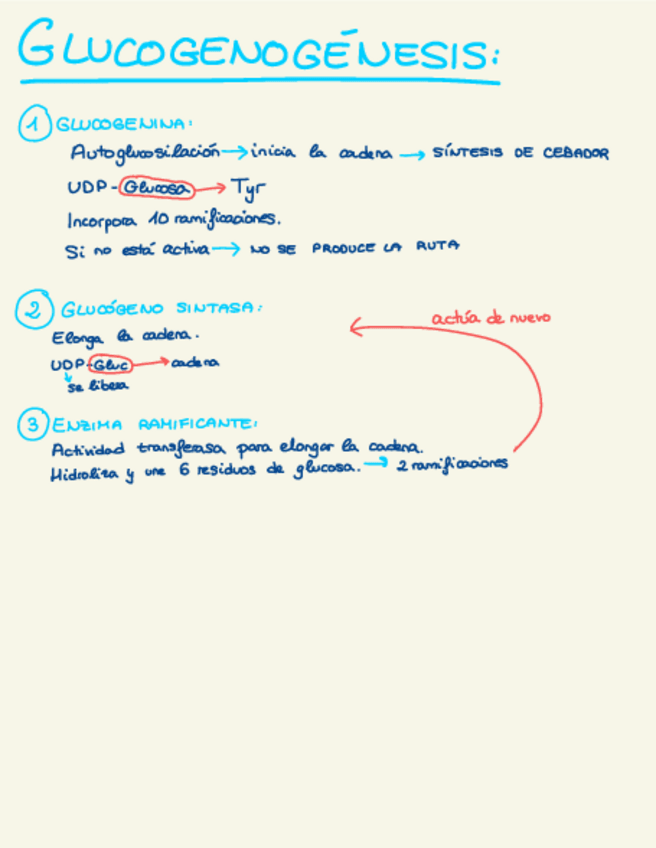 GLUCOGENOGÉNESIS:
1 GLUCOGENINA:
Autoglucosilación → inicia la cadena → SÍNTESIS DE CEBADOR
UDP-Glucosa → Tyr
Incorpora 10 ramificaciones.
Si no está activa → NO SE PRODUCE LA RUTA
2 GLUCÓGENO SINTASA:
actúa de nuevo
Elonga la cadena.
UDP-Gluc → cadena
se libera
3 ENZIMA RAMIFICANTE:
Actividad transferasa para elongar la cadena.
Hidroliza y une 6 residuos de glucosa. → 2 ramificaciones